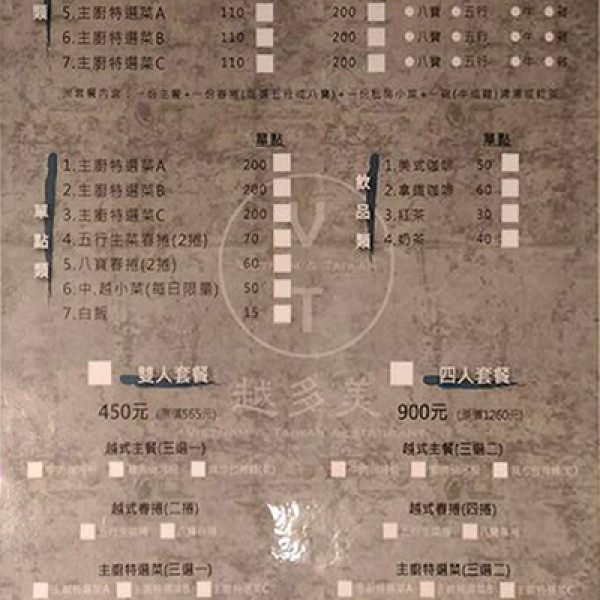 類
5.主廚特選菜A 110 200 八寶 五行 牛 雞
6.主廚特選菜B 110 200 八寶 五行 牛 雞
7.主廚特選菜C 110 200 八寶 五行 牛 雞
單點
單點類
1.主廚特選菜A 200
2.主廚特選菜B 200
3.主廚特選菜C 200
4.五行生菜春捲(2捲) 70
5.八寶春捲(2捲) 60
6.中.越小菜(每日限量) 50
7.白飯 15
單點
飲品類
1.美式咖啡 50
2.拿鐵咖啡 60
3.紅茶 30
4.奶茶 40
VT
越多美
雙人套餐
450元 (原價565元)
越式主餐(三選一)
越式春捲(二捲)
五行生菜捲 八寶春捲
主廚特選菜(三選一)
主廚特選菜A 主廚特選菜B 主廚特選菜C
四人套餐
900元 (原價1260元)
越式主餐(三選二)
越式春捲(四捲)
主廚特選菜(三選二)
主廚特選菜A 主廚特選菜B 主廚特選菜C